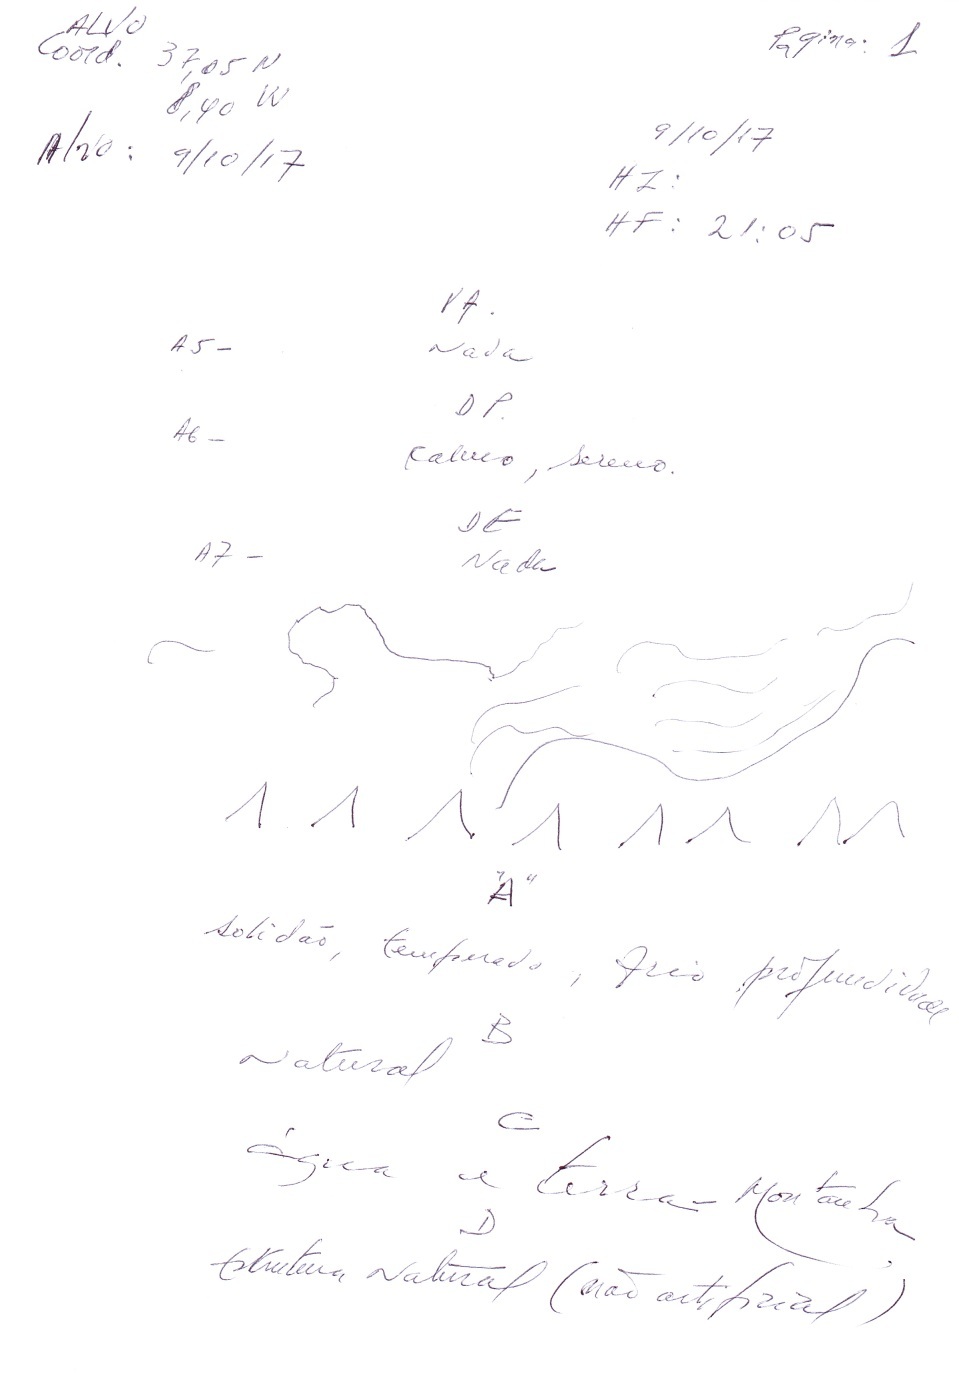 ALVO
Coord. 37,05 N
8,40 W
Página: 1
Alvo: 9/10/17
9/10/17
HI:
HF: 21:05
PA.
A5- Nada
DP.
A6- Calmo, sereno.
DE
A7- Nada
"A"
solidão, temperado, frio profundidade
B
Natural
C
água e terra - Montanha
D
Estrutura Natural (não artificial)